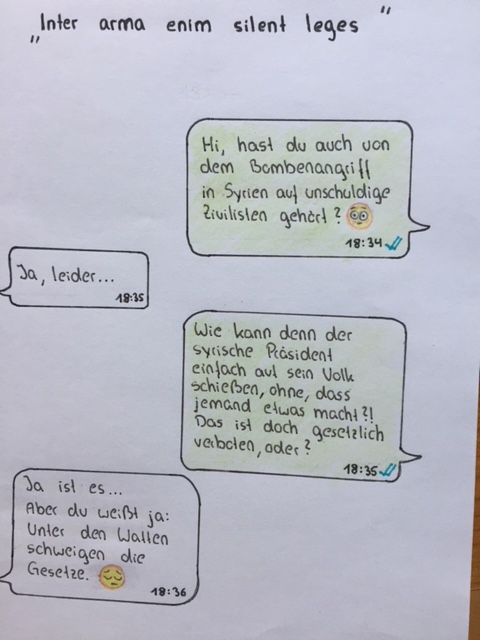 „Inter arma enim silent leges"
Hi, hast du auch von
dem Bombenangriff
in Syrien auf unschuldige
Zivilisten gehört? 😳
18:34
Ja, leider...
18:35
Wie kann denn der
syrische Präsident
einfach auf sein Volk
schießen, ohne, dass
jemand etwas macht?!
Das ist doch gesetzlich
verboten, oder?
18:35
Ja ist es...
Aber du weißt ja:
Unter den Waffen
schweigen die
Gesetze. 😔
18:36